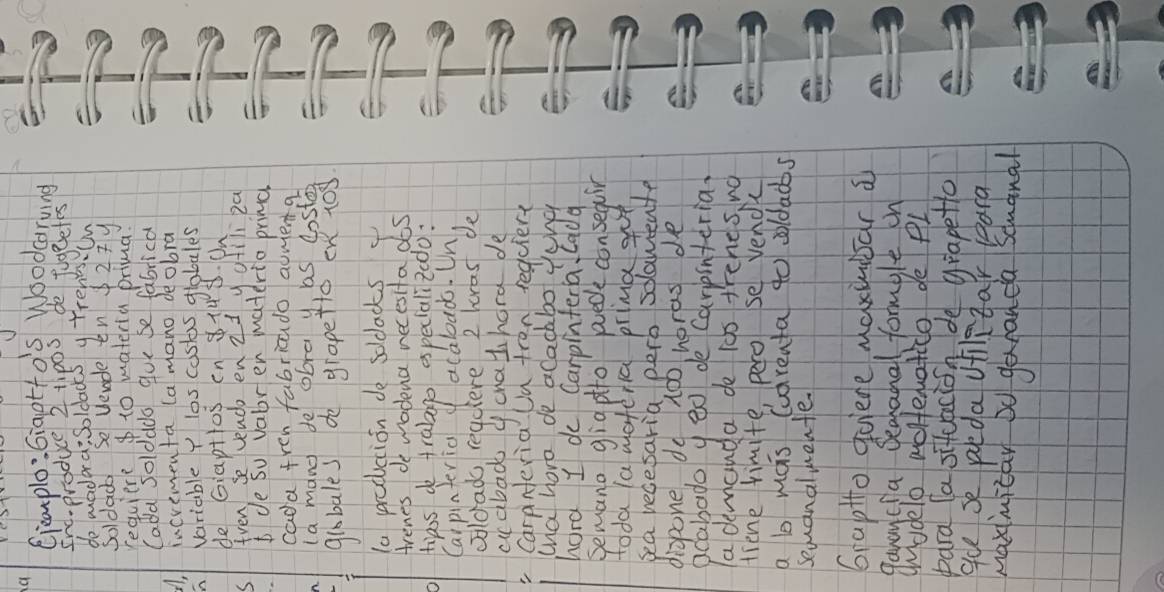 Ejemplo: Giaptto's Woodcarving
Inc. produce 2 tipos de juguetes
de madera: soldados y trenes. Un
soldado se vende en $ 27 y
requiere $ 10 materia prima.
Cada soldado que se fabrica
incrementa la mano de obra
variable y los costos globales
de Giapttos en $ 14 $. Un
tren se vende en 21 y utiliza
$ de su valor en materia prima
cada tren fabricado aumenta
la mano de obra y los costos
globales de giapetto en 10$.
la producción de soldados y
trenes de madera necesita dos
tipos de trabajo especializado:
Carpinteria y acabado. Un
soldado requiere 2 horas de
acabado y una 1 hora de
carpinteria. Un tran requiere
Una hora de acabado y una
hora 1 de Carpinteria. Cada
Semana giapto puede conseguir
toda la materia prima que
sea necesaria pero solamente
dispone de 100 horas de
acabado y 80 de Carpinteria.
la demanda de los trenes no
tiene limite, pero se vende
a lo más Cuarenta 40 soldados
semanalmente.
Giaptto quiere maximizar su
ganancia semanal formule un
modelo matematico de PL
para la situación de giapetto
que se pueda utilizar para
maximizar su ganancia semanal